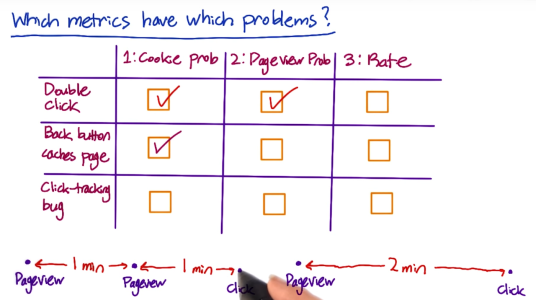 Which metrics have which problems?
1: Cookie prob 2: Pageview Prob 3: Rate
Double
click
Back button
caches page
Click-tracking
bug
1 min 1 min 2 min
Pageview Pageview Click Pageview Click